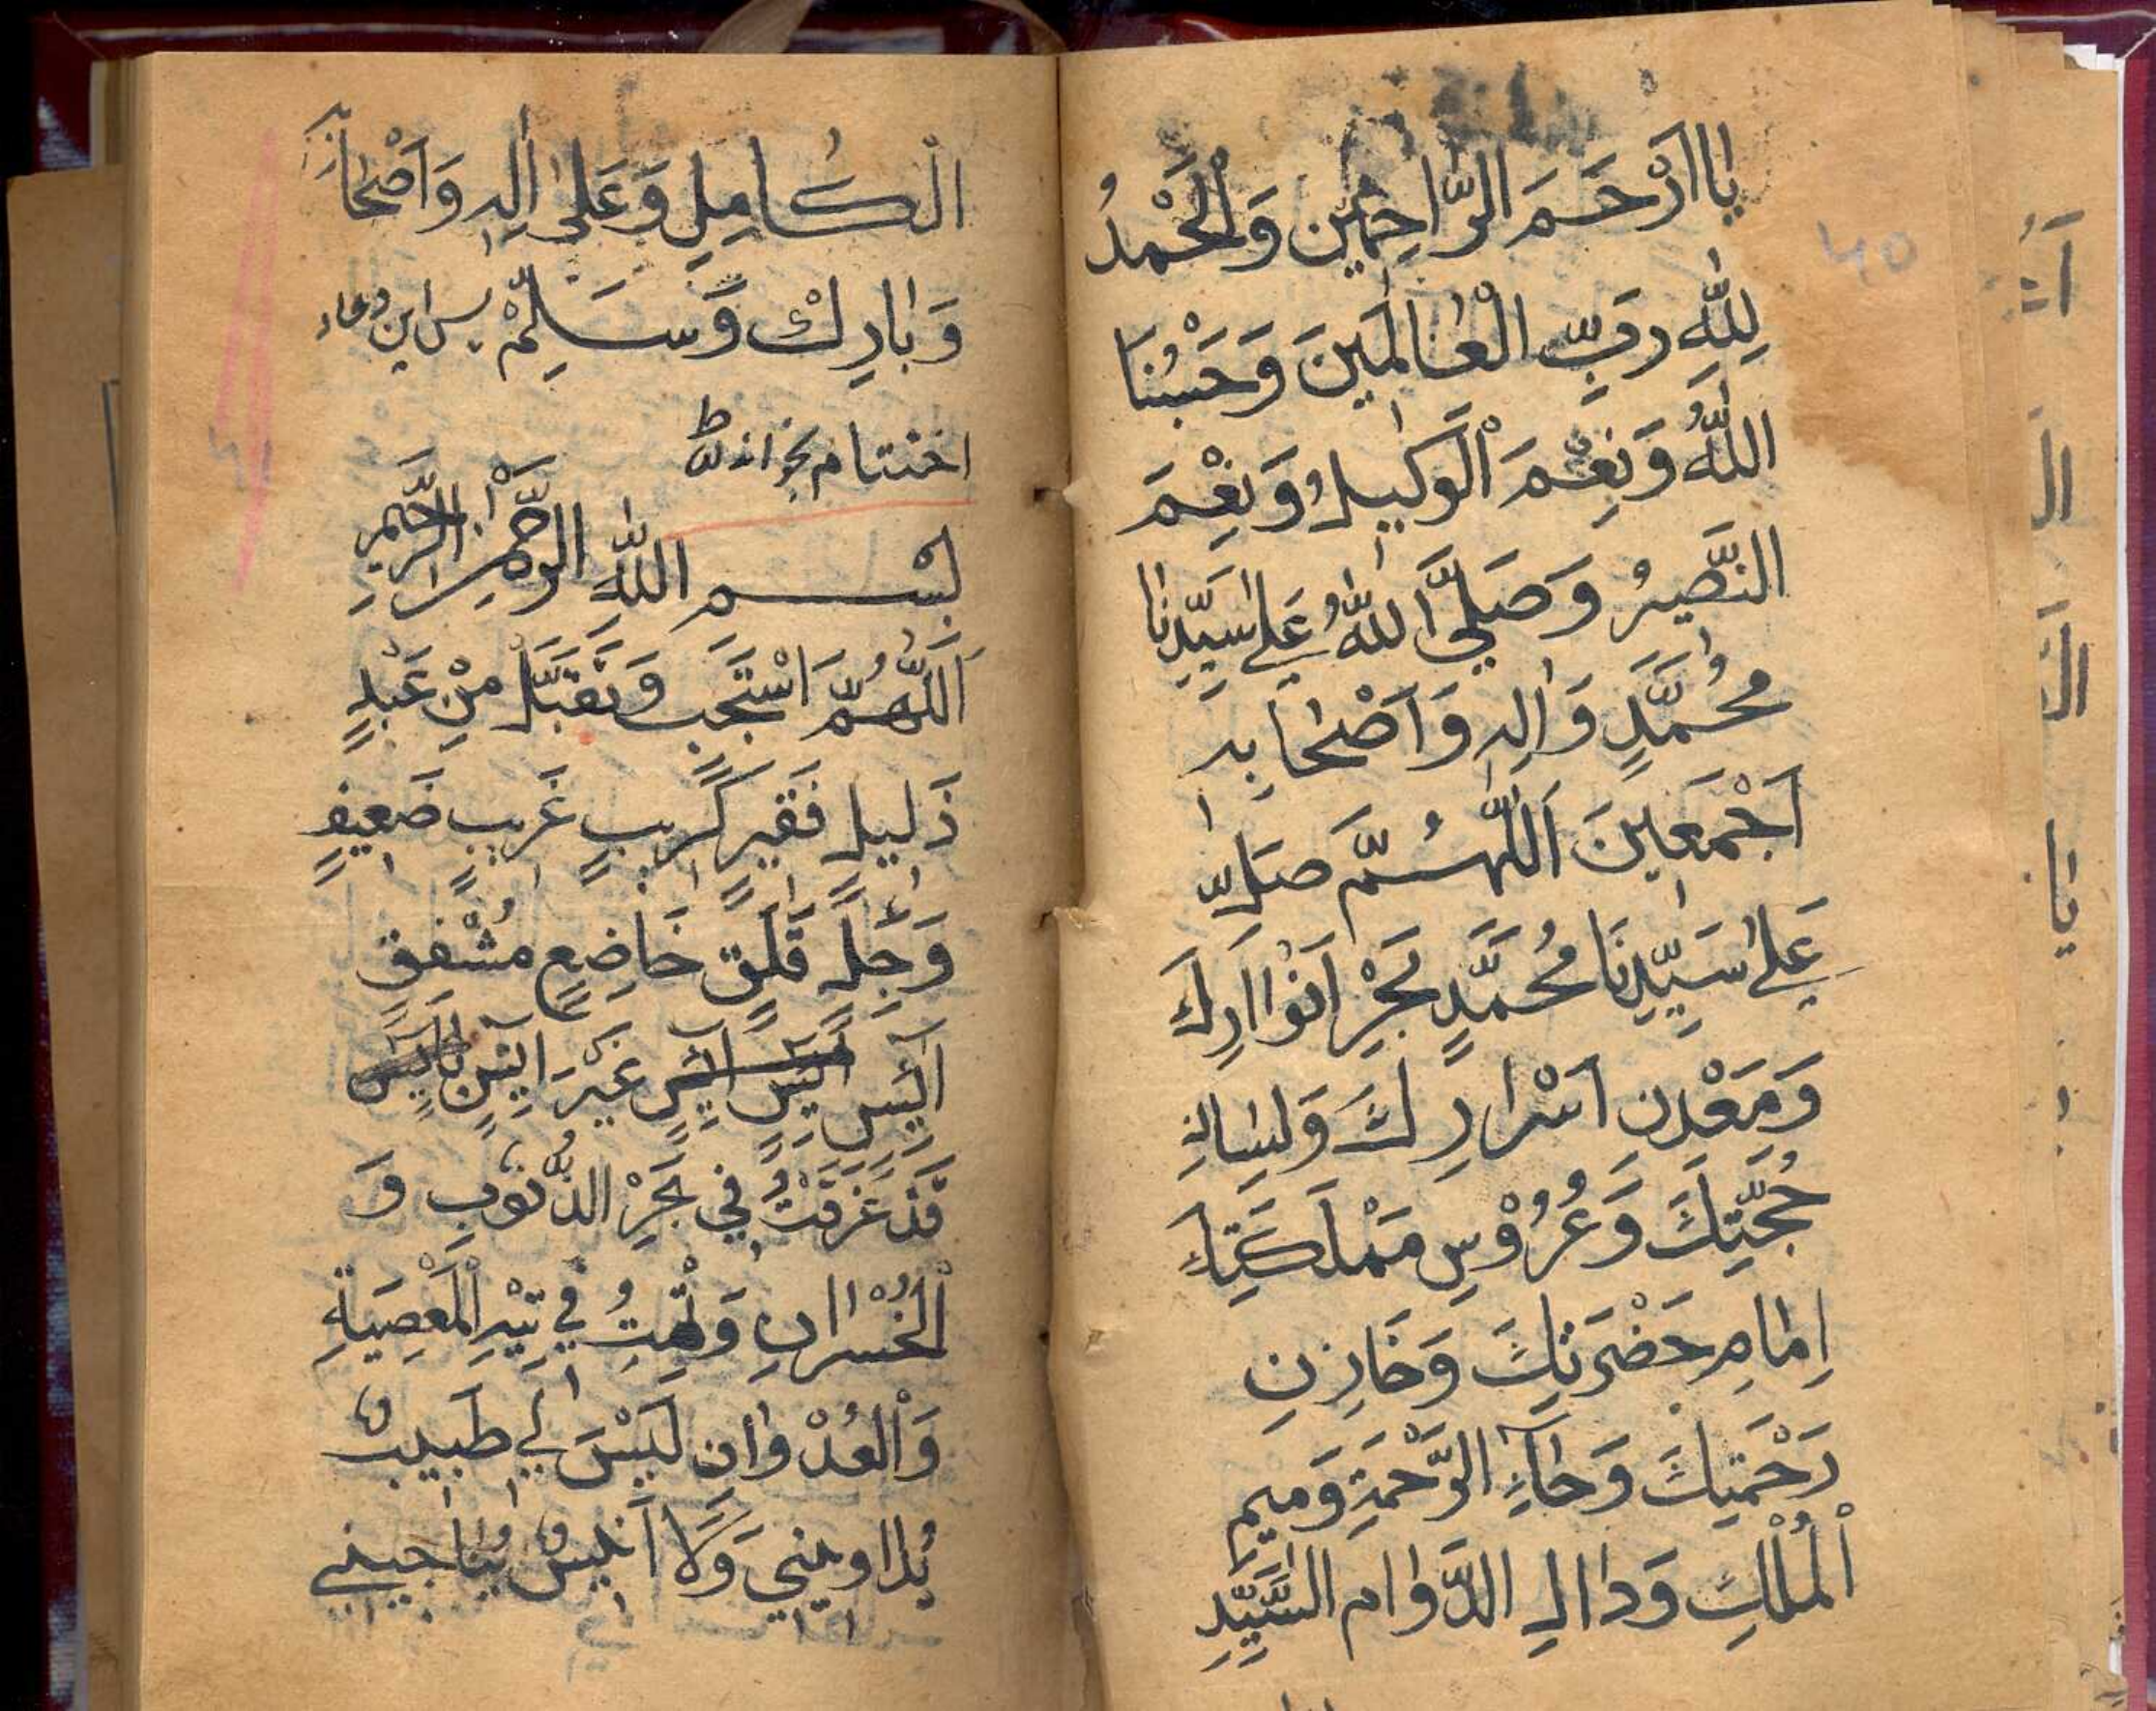 يَا اَرْحَمَ الرَّاحِمِيْن وَالْحَمْدُ
لِلّٰهِ رَبِّ الْعَالَمِيْنَ وَحَسْبُنَا
اللّٰهُ وَنِعْمَ الْوَكِيْلُ وَنِعْمَ
النَّصِيْرُ وَصَلَّى اللّٰهُ عَلٰى سَيِّدِنَا
مُحَمَّدٍ وَاٰلِهٖ وَاَصْحَابِهٖ
اَجْمَعِيْنَ اَللّٰهُمَّ صَلِّ
عَلٰى سَيِّدِنَا مُحَمَّدٍ بَحْرِ اَنْوَارِكَ
وَمَعْدِنِ اَسْرَارِكَ وَلِسَانِ
حُجَّتِكَ وَعُرُوْسِ مَمْلَكَتِكَ
اِمَامِ حَضْرَتِكَ وَخَازِنِ
رَحْمَتِكَ وَحَآءِ الرَّحْمَةِ وَمِيْمِ
الْمُلْكِ وَدَالِ الدَّوَام السَّيِّدِ
الْكَامِلِ وَعَلٰى اٰلِهٖ وَاَصْحَابِهٖ
وَبَارِكْ وَسَلِّمْ پس این دعاء
اختتام بخواند
بِسْمِ اللّٰهِ الرَّحْمٰنِ الرَّحِيْمِ
اَللّٰهُمَّ اسْتَجِبْ وَتَقَبَّلْ مِنْ عَبْدٍ
ذَلِيْلٍ فَقِيْرٍ كَرِيْبٍ غَرِيْبٍ ضَعِيْفٍ
وَجِلٍ قَلِقٍ خَاضِعٍ مُشْفِقٍ
آئِسٍ غَيْرَ اٰئِسٍ
قَدْ غَرِقْتُ فِي بَحْرِ الذُّنُوْبِ وَ
الْخُسْرَانِ وَتُهْتُ فِي تِيْهِ الْمَعْصِيَةِ
وَالْعُدْوَانِ لَيْسَ لِي طَبِيْبٌ
يُدَاوِيْنِي وَلَا اَنِيْسٌ يُنَاجِيْنِي